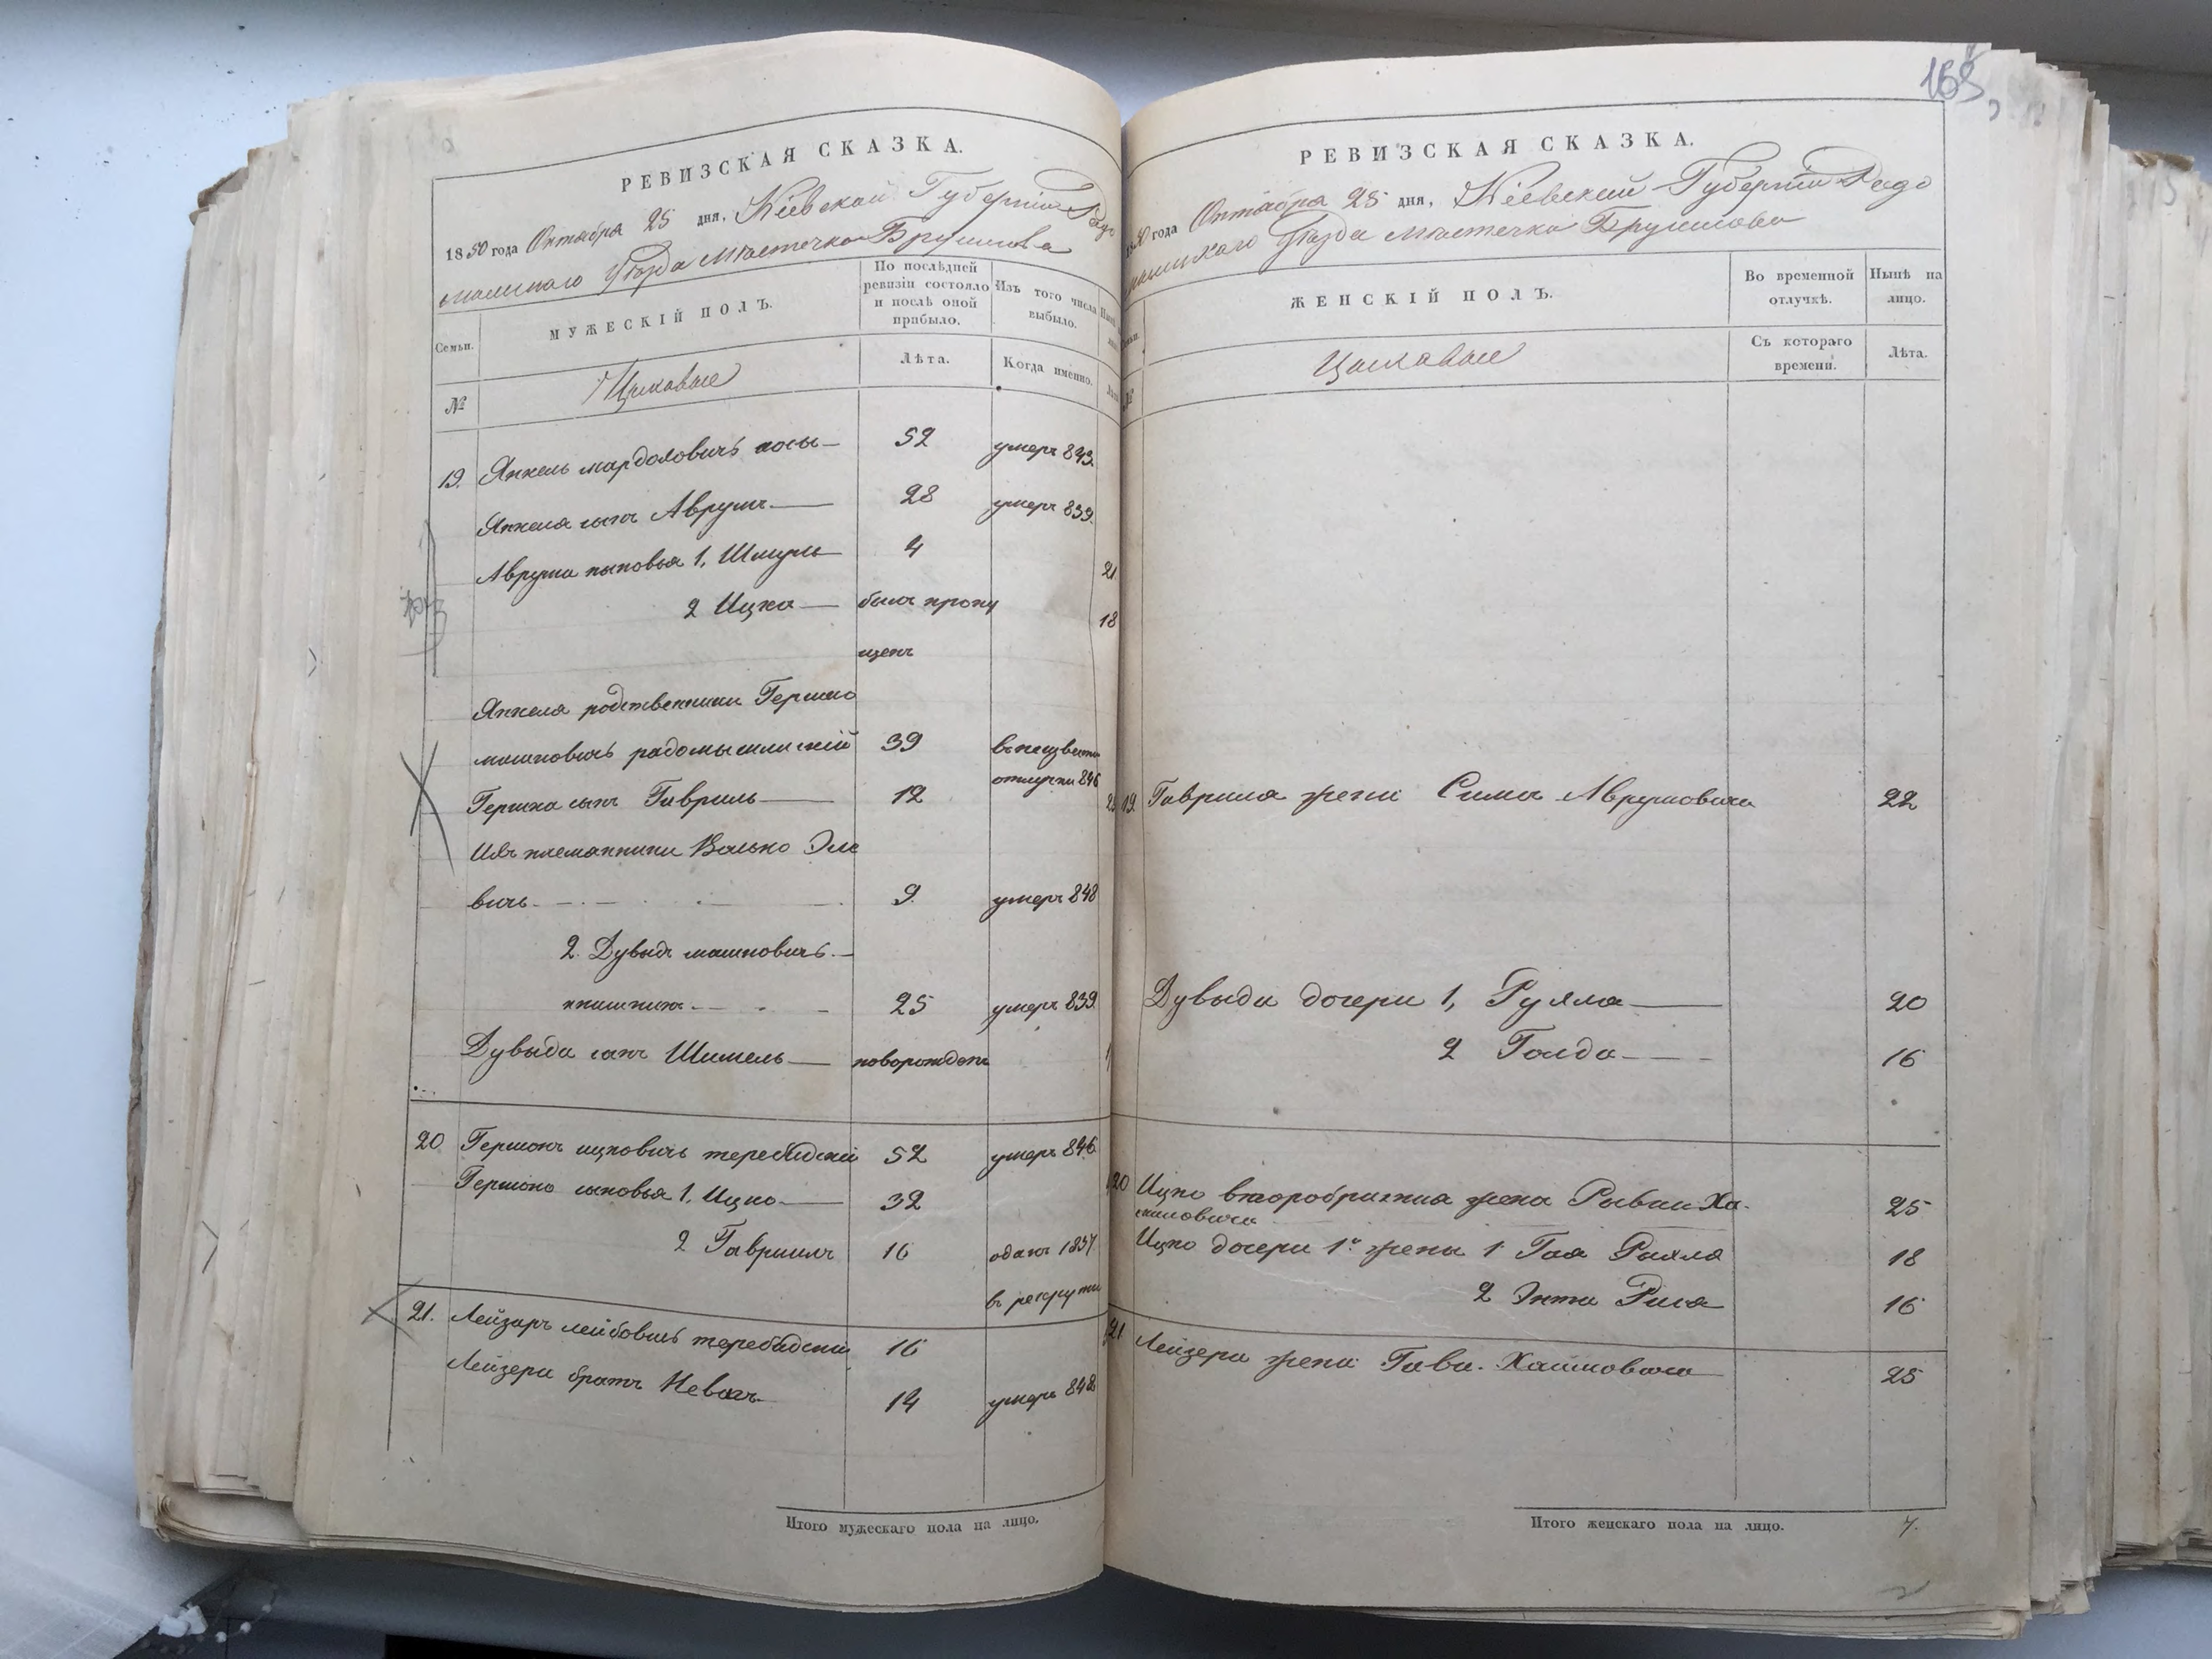 РЕВИЗСКАЯ СКАЗКА.
1850 года Октября 25 дня, Кіевской Губерніи Радо
мысльскаго Уѣзда Мѣстечка Брусилова
Семьи.
МУЖЕСКІЙ ПОЛЪ.
По послѣдней ревизіи состояло и послѣ оной прибыло.
Изъ того числа выбыло.
№
Лѣта.
Когда именно.
19. Янкель мардоховичъ 52 умеръ 843.
Янкеля сынъ Аврумъ 28 умеръ 839.
Аврума сыновья 1, Шмуль 4 21
2 Ицко былъ пропу 18
щенъ
Янкеля родственники Гершко
машковичъ радомысльскій 39 въ неизвѣстн
отлучки 846
Гершка сынъ Гаврило 12
Ихъ племянники Волько Эле
вичъ 9 умеръ 848
2. Дувыдъ машковичъ
25 умеръ 839.
Дувыда сынъ Шимель новорожденъ
20 Гершонъ ицковичъ теребидскій 52 умеръ 846
Гершона сыновья 1, Ицко 32
2 Гавриилъ 16 одатъ 1837
въ рекруты
21. Лейзаръ лейбовичъ теребидскій 16
Лейзера братъ 14 умеръ 848
Итого мужескаго пола на лицо.
168
РЕВИЗСКАЯ СКАЗКА.
1850 года Октября 25 дня, Кіевской Губерніи Радо
мысльскаго Уѣзда Мѣстечка Брусилова
ЖЕНСКІЙ ПОЛЪ.
Во временной отлучкѣ.
Нынѣ на лицо.
№
Съ котораго времени.
Лѣта.
19 Гаврила жена Сима Аврумовна 22
Дувыда дочери 1, Рухля 20
2 Голда 16
20 Ицко второбрачная жена Ривка Ха-
имовна 25
Ицко дочери 1й жены 1 Гая Рухля 18
2 Энта Рися 16
21 Лейзера жена Гава Хаимовна 25
Итого женскаго пола на лицо. 7.